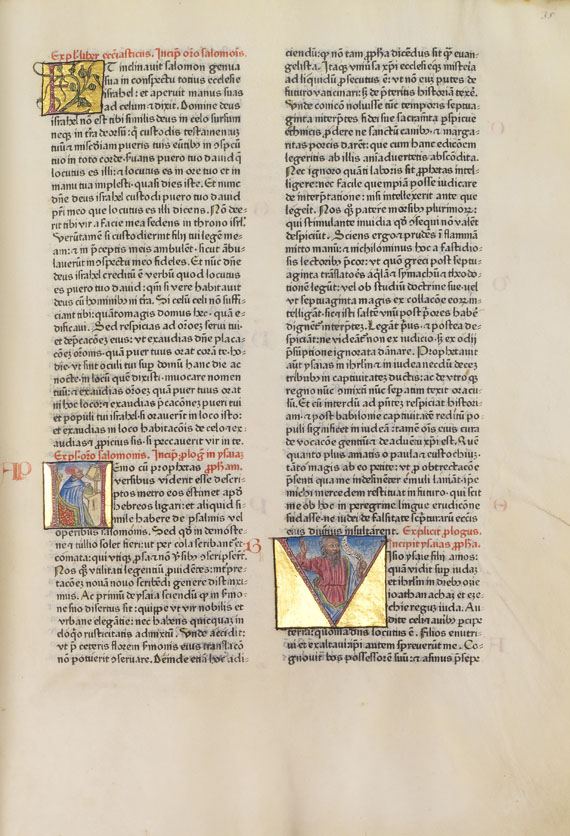 Expl. liber ecclīasticus. Incip̄ orō salomōis.
T inclinauit salomon genua
sua in conspectu totius ecclesie
israhel: et aperuit manus suas
ad celum et dixit. Domine deus
israhel nō est tibi similis deus in celo sursum
neqꝫ in tr̄a deorsū: q̄ custodis testamentū
tuū et misc̄diam pueris tuis eūtibꝰ in ꝯspcū
tuo in toto corde. suans puero tuo dauid q̄
locutus es illi: et locutus es in ore tuo et in
manu tua implesti. quasi dies iste. Et nunc
dn̄e deus israhel custodi puero tuo dauid
pr̄i meo que locutus es illi dicens. Nō dee-
rit tibi vir a facie mea sedens in throno isrl̄.
Verūtamē si custodierint filij tui legē me-
am: et in p̄ceptis meis ambulēt. sicut ābu-
lauerūt in ꝯspectu meo fideles. Et nūc dn̄e
deus israhel creditū ē verbū quod locutus
es puero tuo dauid: qn̄ si vere habitauit
deus cū hominibꝰ in tr̄a. Si celū celi nō suffi-
ciant tibi: quātomagis domus hec. quā e-
dificaui. Sed respicias ad orōez serui tui.
et dep̄cacōez eius: vt exaudias dn̄e placa-
cōez orōnis. quā puer tuus orat corā te ho-
die. vt sint oculi tui sup domū hanc die ac
nocte. in locū quē dixisti. inuocare nomen
tuū: et exaudias orōez quā puer tuus orat
in hoc loco: et exaudias p̄cacōnez pueri tui
et populi tui israhel. si orauerīt in loco isto:
et exaudias in loco habitacōis de celo. et ex-
audias et ꝓpicius sis. si peccauerit vir in te.
Expl. orō salomonis. Incip̄. ꝓlog̅ in ysaiā
ꝓph̄am.
Emo cū prophetas
versibus viderit esse descri-
ptos metro eos estimet apd̄
hebreos ligari: et aliquid si-
mile habere de psalmis vel
operibus salomonis. Sed qd̄ in demoste-
ne et tullio solet fieri: ut per cola scribant̄ et
comata: qui vtiqꝫ ꝓsa et nō v̄sibꝰ ↄscripserūt.
Nos q̄ꝫ vtilitati legentiū ꝓuidētes: int̄pre-
tacōez nouā nouo scribēdi genere distinxi-
mus. Ac primū de ysaia sciendū q̄ in s̄mo-
ne suo disertus sit: quippe vt vir nobilis et
vrbane elegātie: nec habens quicquā in
eloq̄o rusticitatis admixtū. Vnde accidit:
vt p̄ ceteris florem s̄monis eius translacō
nō potuerit ↄseruare. Deinde etiā hoc adi-
ciendū: ꝙ nō tam ꝓph̄a dicēdus sit q̄ euan-
gelista. Ita em̄ vniūsa xp̄i ecclesieqꝫ misteria
ad liquidū ꝓsecutus ē: vt nō eū putes de
futuro vaticinari: sꝫ de p̄teritis historiā texē.
Vnde conicio noluisse tūc temporis septua-
ginta interp̄tes fidei sue sacramēta ꝑspicue
ethnicis ꝓdere ne sanctū canibꝰ et marga-
ritas porcis darēt: que cum hanc edicōem
legeritis ab illis aīaduertetis abscōdita.
Nec ignoro quāti laboris sit ꝓphetas intel-
ligere: nec facile quempiā posse iudicare
de interp̄tatione: nisi intellexerit ante que
legerit. Nos q̄ꝫ patere morsibꝰ plurimorꝫ:
qui stimulante inuidia qd̄ ↄsequi nō valēt
despiciūt. Sciens ergo et prudēs ī flammā
mitto manū: et nichilominus hoc a fastidio-
sis lectoribꝰ p̄cor: vt quō greci post septu-
aginta trāslatoēs aq̄lā et symachū et theodo-
tionē legūt: vel ob studiū doctrine sue. vel
vt septuaginta magis ex collacōe eoꝝ in-
telligāt. sic et isti saltē vnū post p̄ores habē
dignēt interp̄tē. Legāt p̄us. et postea de-
spiciāt: ne videāt̄ nō ex iudicio. sꝫ ex odij
p̄sūptione ignorata dānare. Prophetauit
aut̄ ysaias in ihrl̄m et in iudea necdū decē
tribubꝰ in captiuitatē ductis: ac de vtroqꝫ
regno nūc ↄmixtī nūc sep̄atim texit oracu-
lū. Et cū interdū ad p̄ntē respiciat histori-
am. et post babilonie captiuitatē reditū po-
puli significet in iudeā: tamē oīs eius cura
de vocacōe gentiū et de aduētu xp̄i est. Quē
quanto plus amatis o paula et eustochiū.
tāto magis ab eo petite: vt ꝓ obtrectacōe
p̄senti qua me indesinēter emuli laniāt. ip̄e
michi mercedem restituat in futuro. qui scit
me ob hoc in peregrine lingue erudicōe
sudasse. ne iudei de falsitate scripturarū eccīis
eius diutius insultarent. Explicit ꝓlogus.
Incipit ysaias ꝓph̄a.
Isio ysaie filij amos:
quā vidit sup iudaz
et ihrl̄m in diebꝰ ozie
ioathan achaz et eze-
chie regū iuda. Au-
dite celi et auribꝰ ꝑcipe
terra: quoniā dn̄s locutus ē. Filios enutri-
ui et exaltaui: ip̄i autem spreuerūt me. Co-
gnouit bos possessorē suū: et asinus p̄sepe